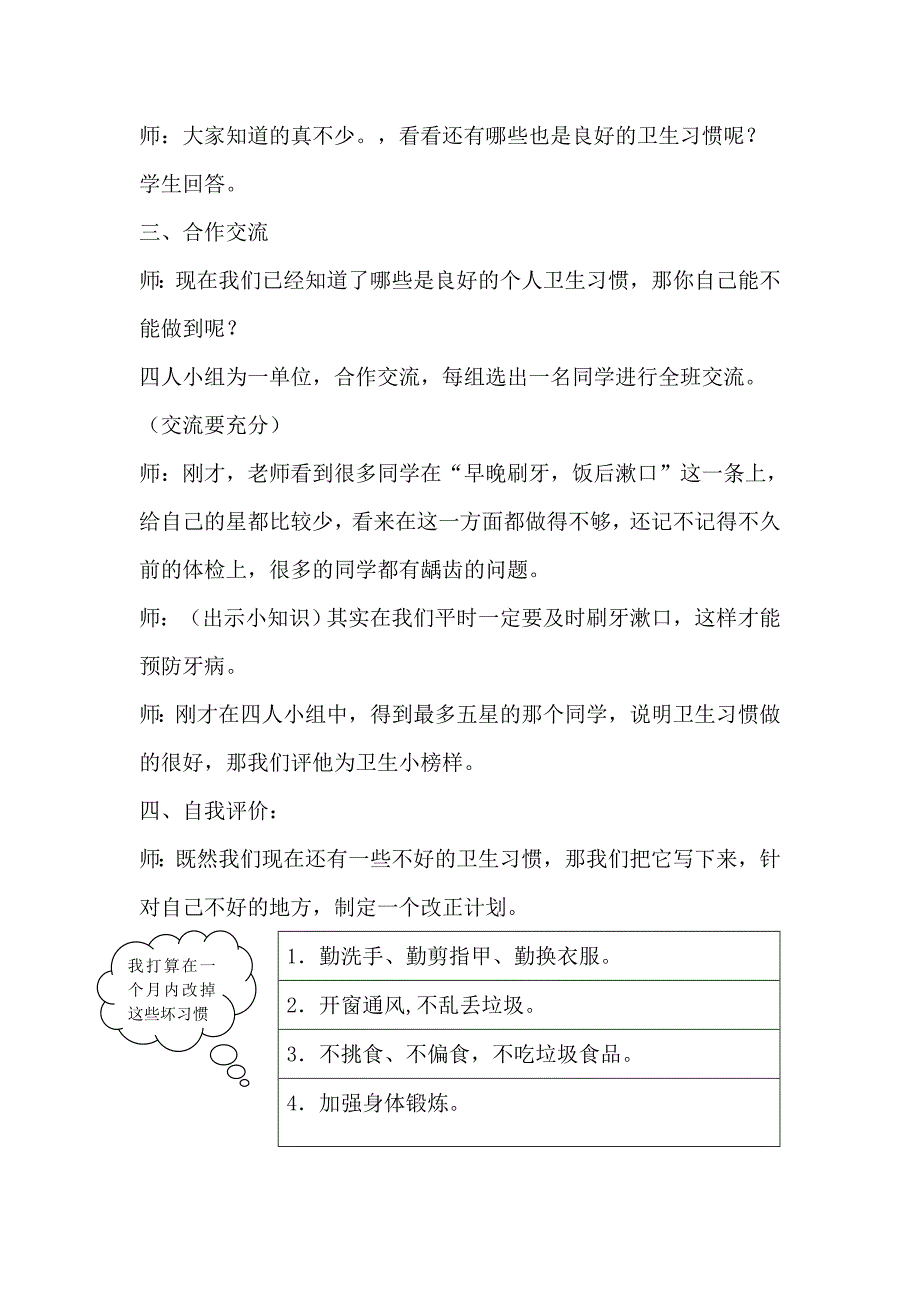 师：大家知道的真不少。，看看还有哪些也是良好的卫生习惯呢？
学生回答。
三、合作交流
师：现在我们已经知道了哪些是良好的个人卫生习惯，那你自己能不
能做到呢？
四人小组为一单位，合作交流，每组选出一名同学进行全班交流。
（交流要充分）
师：刚才，老师看到很多同学在“早晚刷牙，饭后漱口”这一条上，
给自己的星都比较少，看来在这一方面都做得不够，还记不记得不久
前的体检上，很多的同学都有龋齿的问题。
师：（出示小知识）其实在我们平时一定要及时刷牙漱口，这样才能
预防牙病。
师：刚才在四人小组中，得到最多五星的那个同学，说明卫生习惯做
的很好，那我们评他为卫生小榜样。
四、自我评价：
师：既然我们现在还有一些不好的卫生习惯，那我们把它写下来，针
对自己不好的地方，制定一个改正计划。
我打算在一
个月内改掉
这些坏习惯
1．勤洗手、勤剪指甲、勤换衣服。
2．开窗通风,不乱丢垃圾。
3．不挑食、不偏食，不吃垃圾食品。
4．加强身体锻炼。